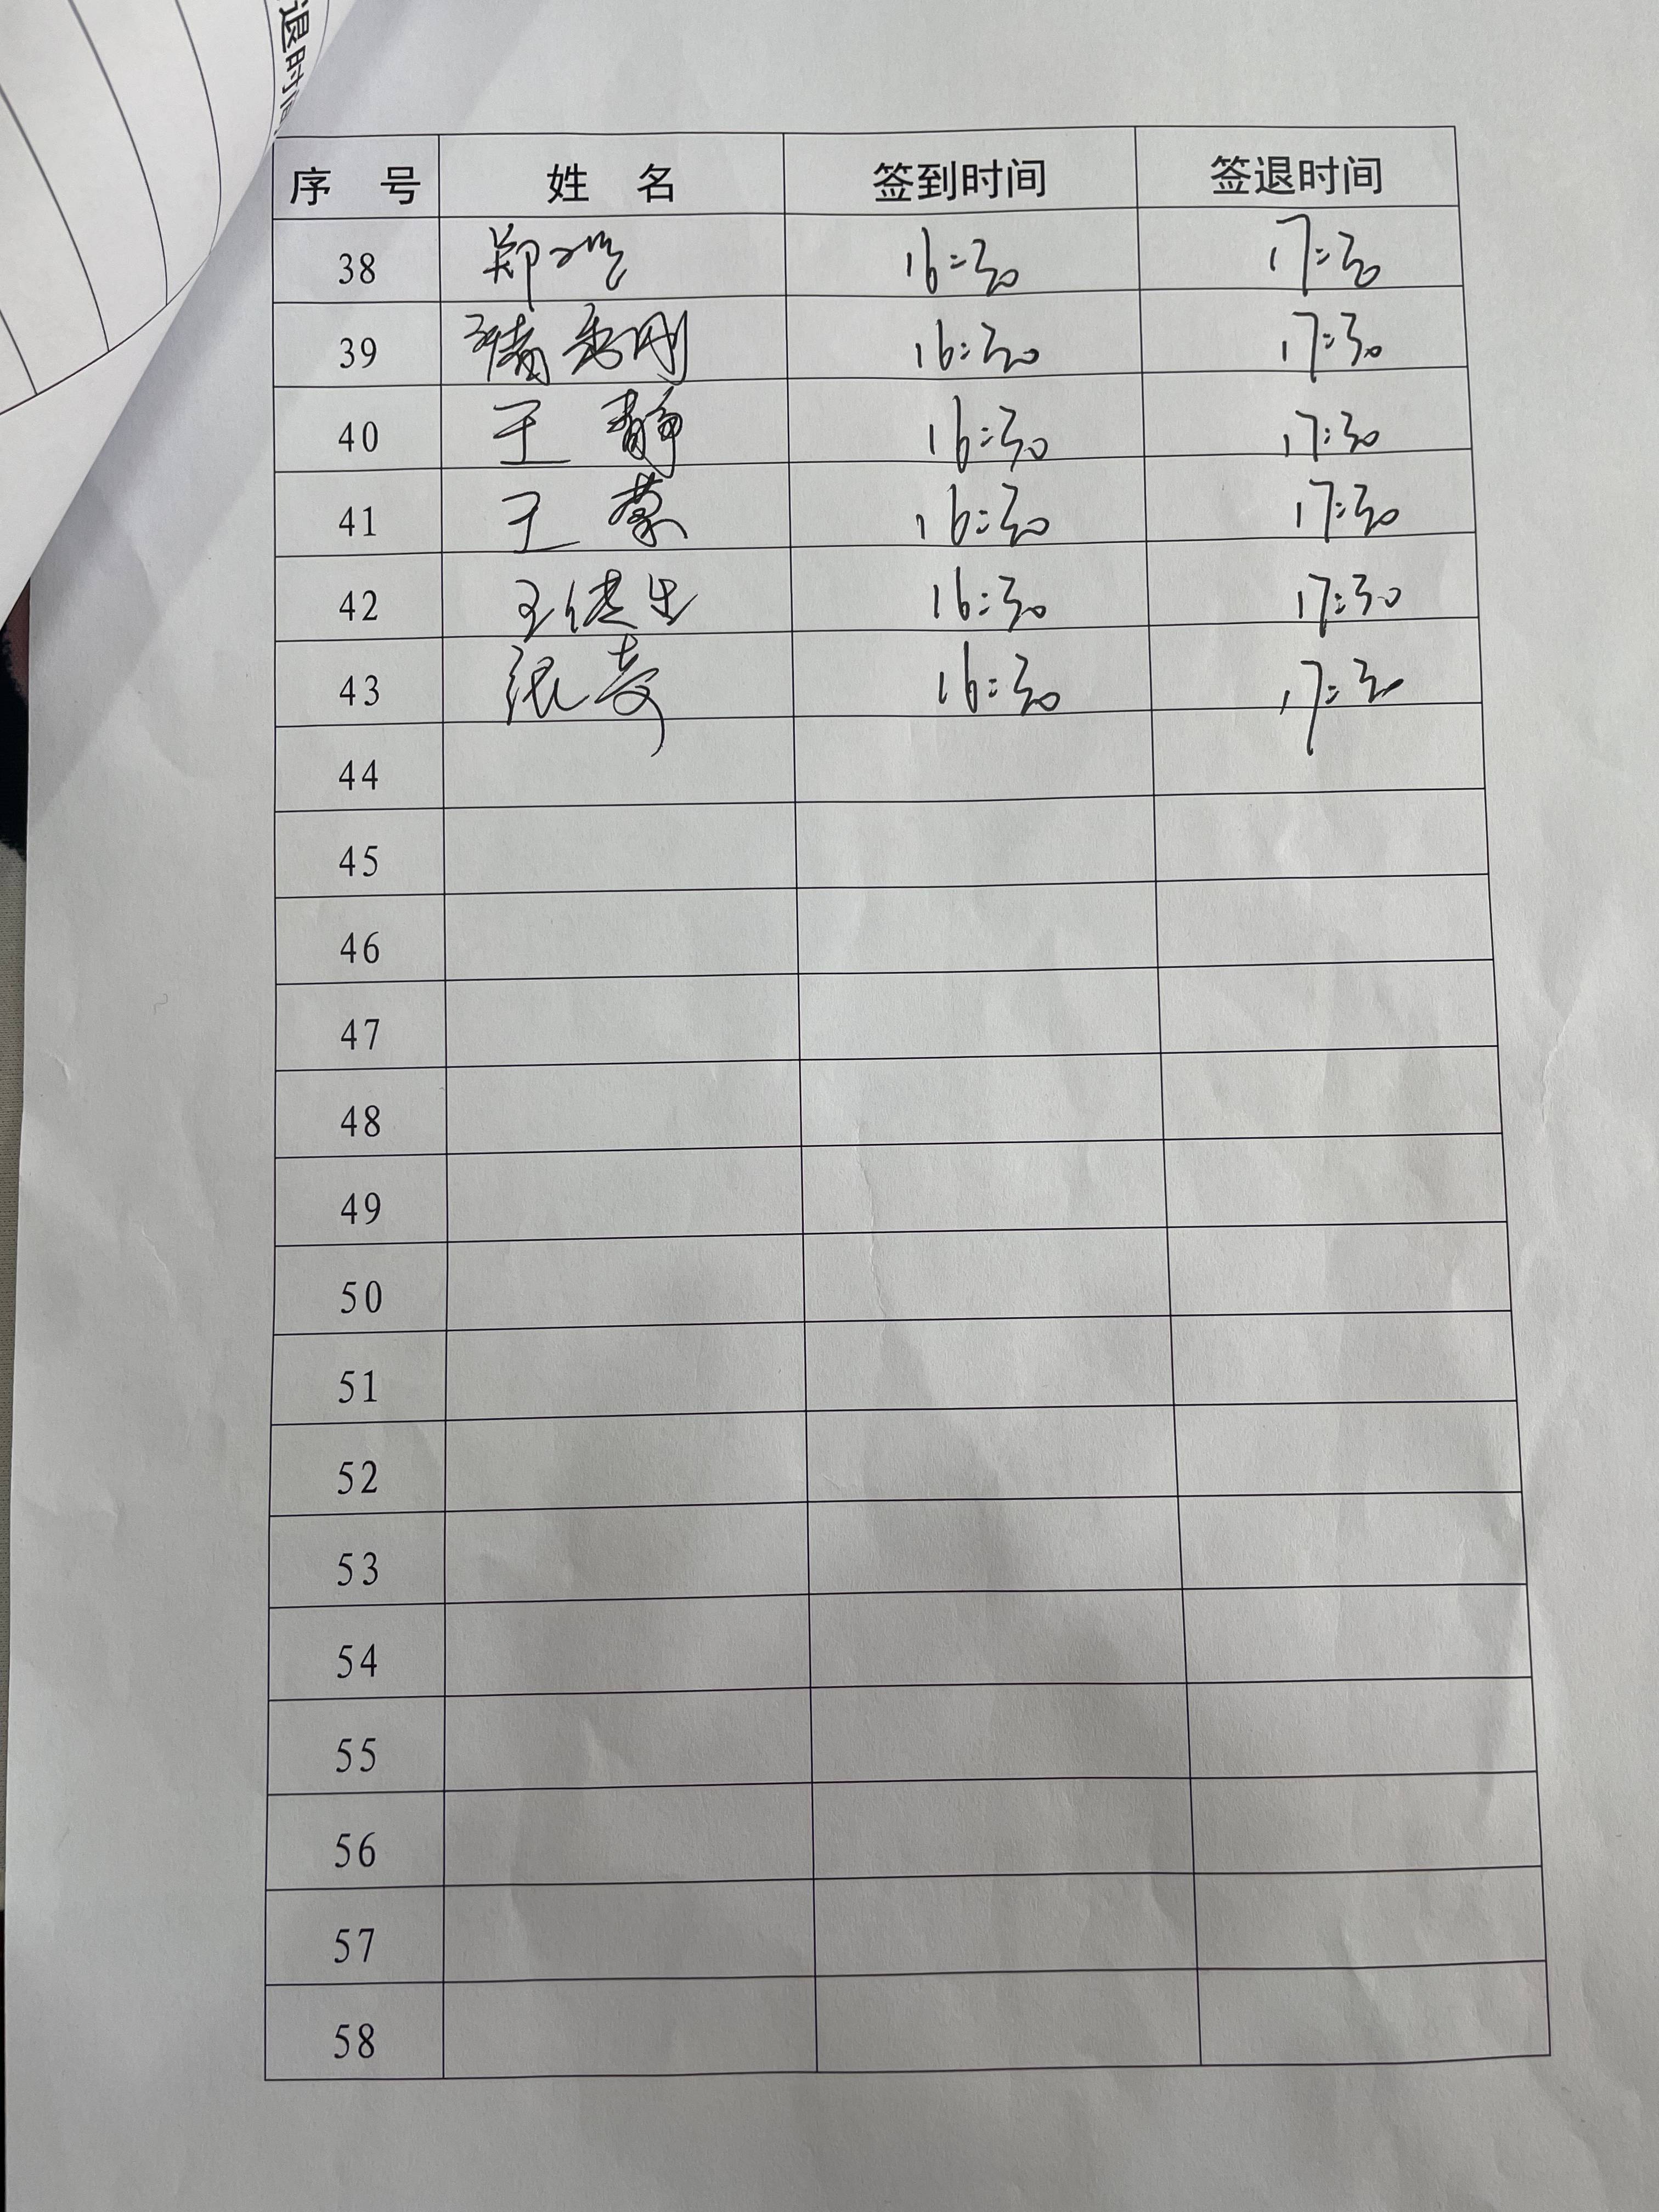 退时间
序 号 姓 名 签到时间 签退时间
38 郑 16:30 17:30
39 刚 16:30 17:30
40 王 静 16:30 17:30
41 王 蒙 16:30 17:30
42 王 生 16:30 17:30
43 张 16:30 17:30
44
45
46
47
48
49
50
51
52
53
54
55
56
57
58